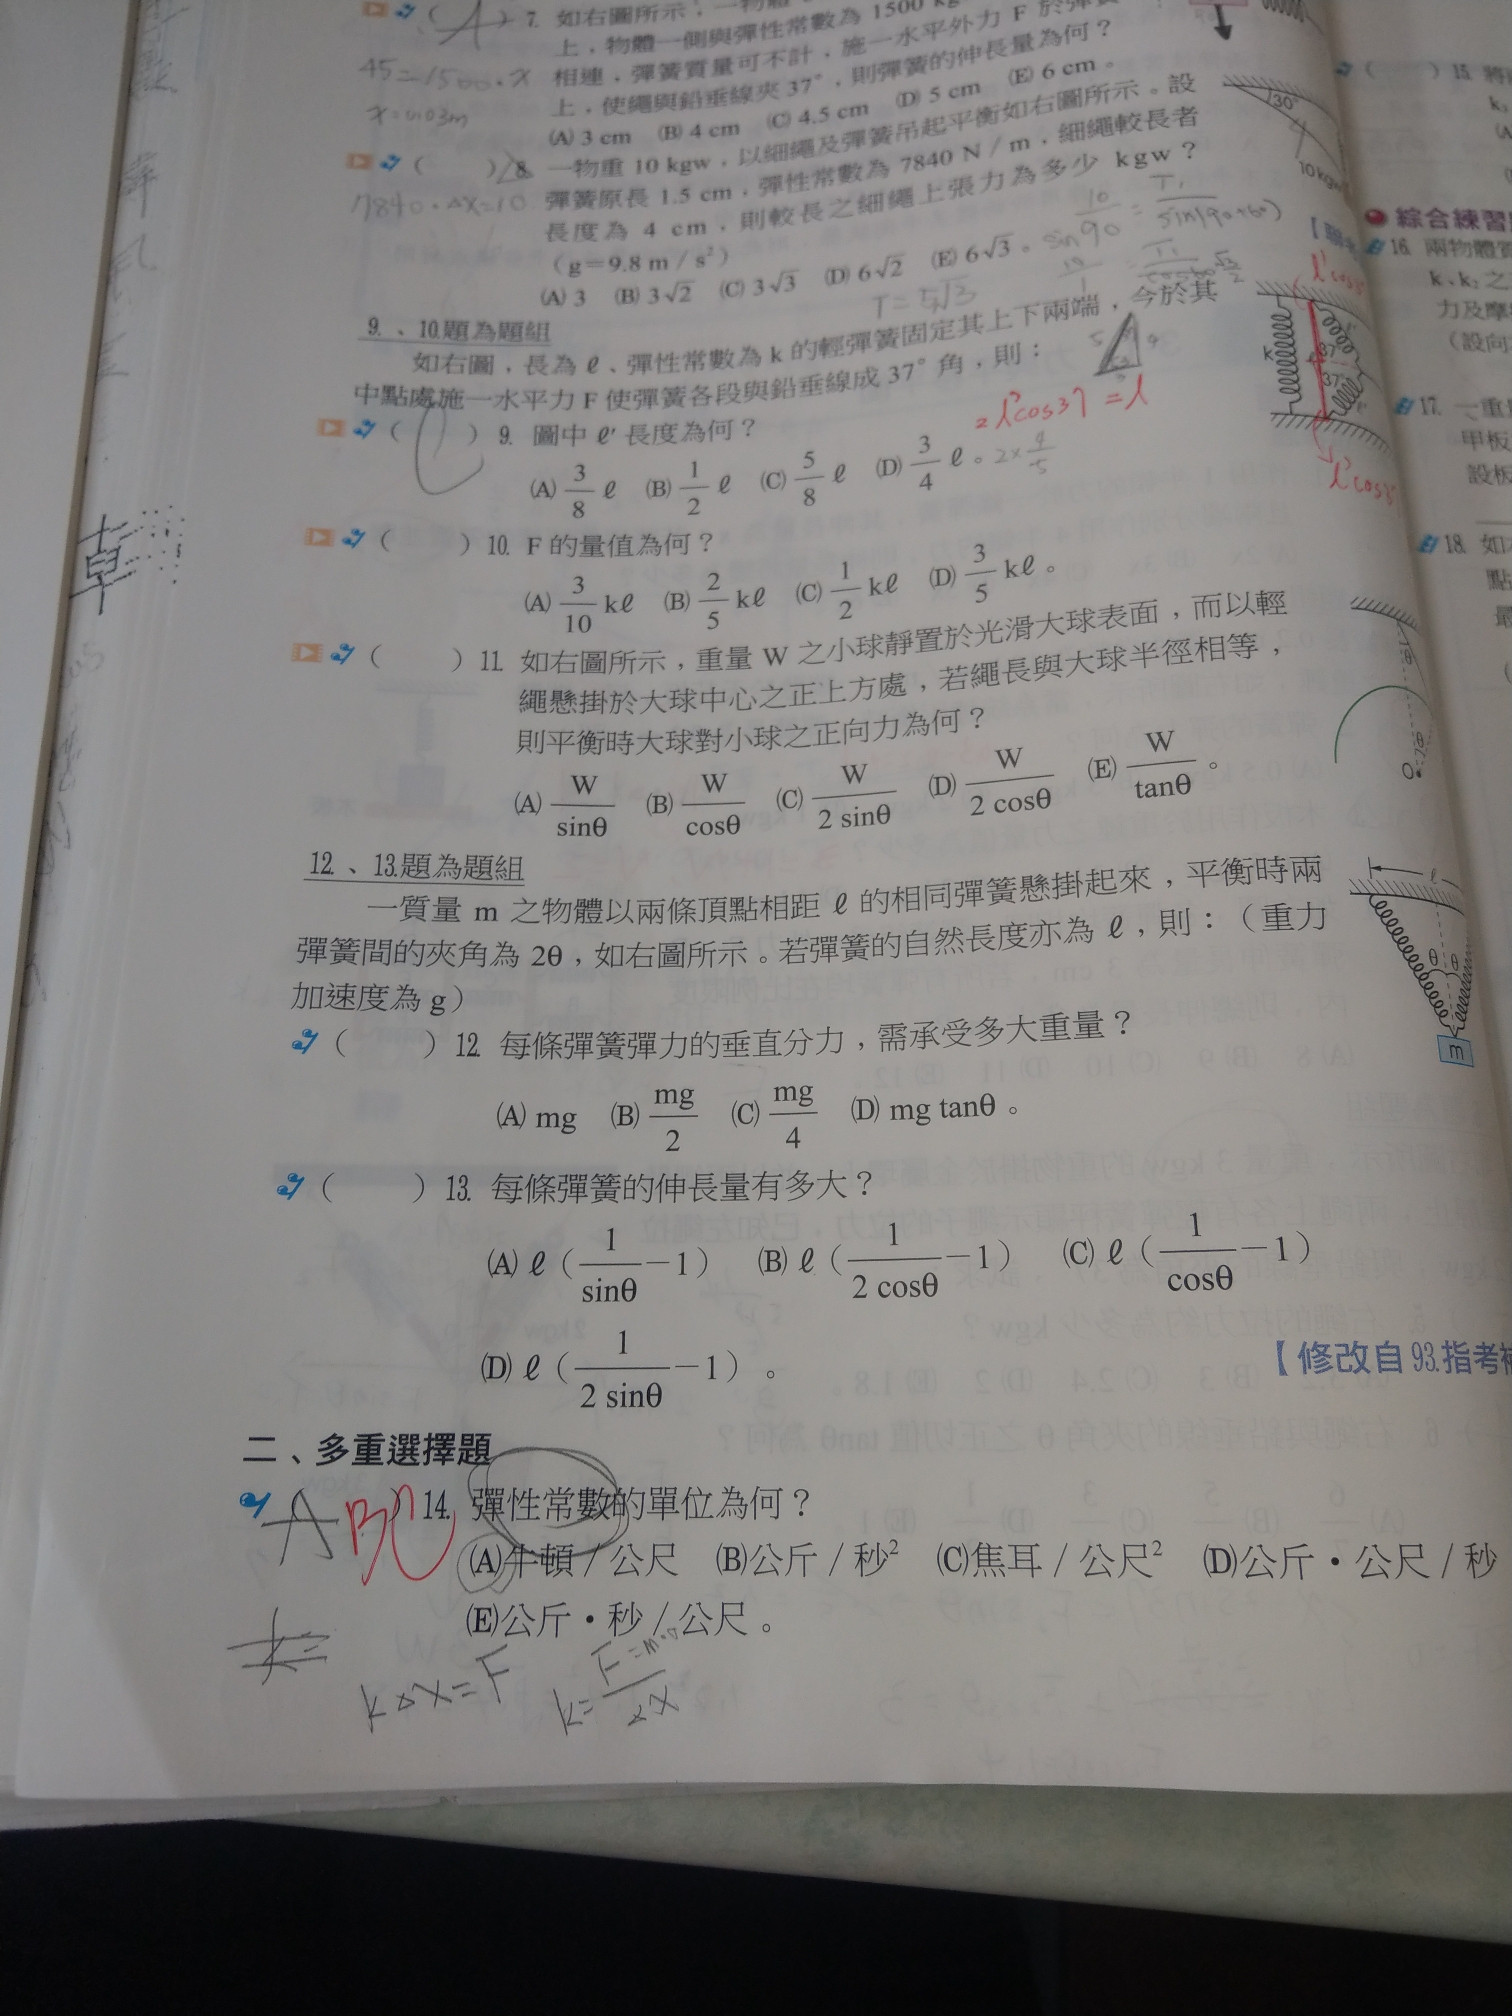 (A) 7. 如右圖所示，一物體
上，物體一側與彈性常數為 1500
45=1500·x 相連，彈簧質量可不計，施一水平外力 F 於彈簧
x=0.03m 上，使繩與鉛垂線夾 37°，則彈簧的伸長量為何？
(A) 3 cm (B) 4 cm (C) 4.5 cm (D) 5 cm (E) 6 cm。
( ) 8. 一物重 10 kgw，以細繩及彈簧吊起平衡如右圖所示。設
7840·△x=10 彈簧原長 1.5 cm，彈性常數為 7840 N／m，細繩較長者
長度為 4 cm，則較長之細繩上張力為多少 kgw？
（g＝9.8 m／s²）
(A) 3 (B) 3√2 (C) 3√3 (D) 6√2 (E) 6√3。
30°
10 kgw
10/sin90 =
T=5√3
9.、10.題為題組
如右圖，長為 ℓ、彈性常數為 k 的輕彈簧固定其上下兩端，今於其
中點處施一水平力 F 使彈簧各段與鉛垂線成 37° 角，則：
2ℓ'cos37=ℓ
( ) 9. 圖中 ℓ' 長度為何？
(A) 3/8 ℓ (B) 1/2 ℓ (C) 5/8 ℓ (D) 3/4 ℓ。 2×4/5
K
37°
37°
( ) 10. F 的量值為何？
(A) 3/10 kℓ (B) 2/5 kℓ (C) 1/2 kℓ (D) 3/5 kℓ。
( ) 11. 如右圖所示，重量 W 之小球靜置於光滑大球表面，而以輕
繩懸掛於大球中心之正上方處，若繩長與大球半徑相等，
則平衡時大球對小球之正向力為何？
(A) W/sinθ (B) W/cosθ (C) W/2 sinθ (D) W/2 cosθ (E) W/tanθ。
θ
O
θ
12.、13.題為題組
一質量 m 之物體以兩條頂點相距 ℓ 的相同彈簧懸掛起來，平衡時兩
彈簧間的夾角為 2θ，如右圖所示。若彈簧的自然長度亦為 ℓ，則：（重力
加速度為 g）
ℓ
θ θ
m
( ) 12. 每條彈簧彈力的垂直分力，需承受多大重量？
(A) mg (B) mg/2 (C) mg/4 (D) mg tanθ。
( ) 13. 每條彈簧的伸長量有多大？
(A) ℓ（1/sinθ－1） (B) ℓ（1/2 cosθ－1） (C) ℓ（1/cosθ－1）
(D) ℓ（1/2 sinθ－1）。
【修改自 93.指考
二、多重選擇題
ABC ) 14. 彈性常數的單位為何？
(A)牛頓／公尺 (B)公斤／秒² (C)焦耳／公尺² (D)公斤·公尺／秒
(E)公斤·秒／公尺。
k△x=F k=F=m·a/△x
) 15. 將
綜合練習
16. 兩物體質
k、k₂ 之
力及摩
（設向
17. 一重
甲板
設板
18. 如
點
最